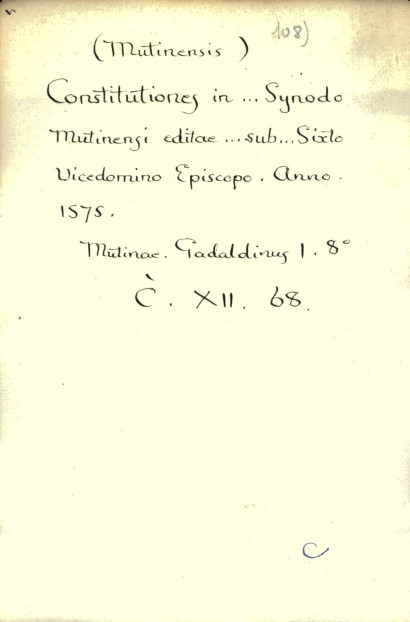 108)
(Mutinensis)
Constitutiones in ... Synodo
Mutinensi editae ... sub ... Sixto
Vicedomino Episcopo. Anno.
1575.
Mutinae. Gadaldinus 1. 8°
C̀. XII. 68.
C